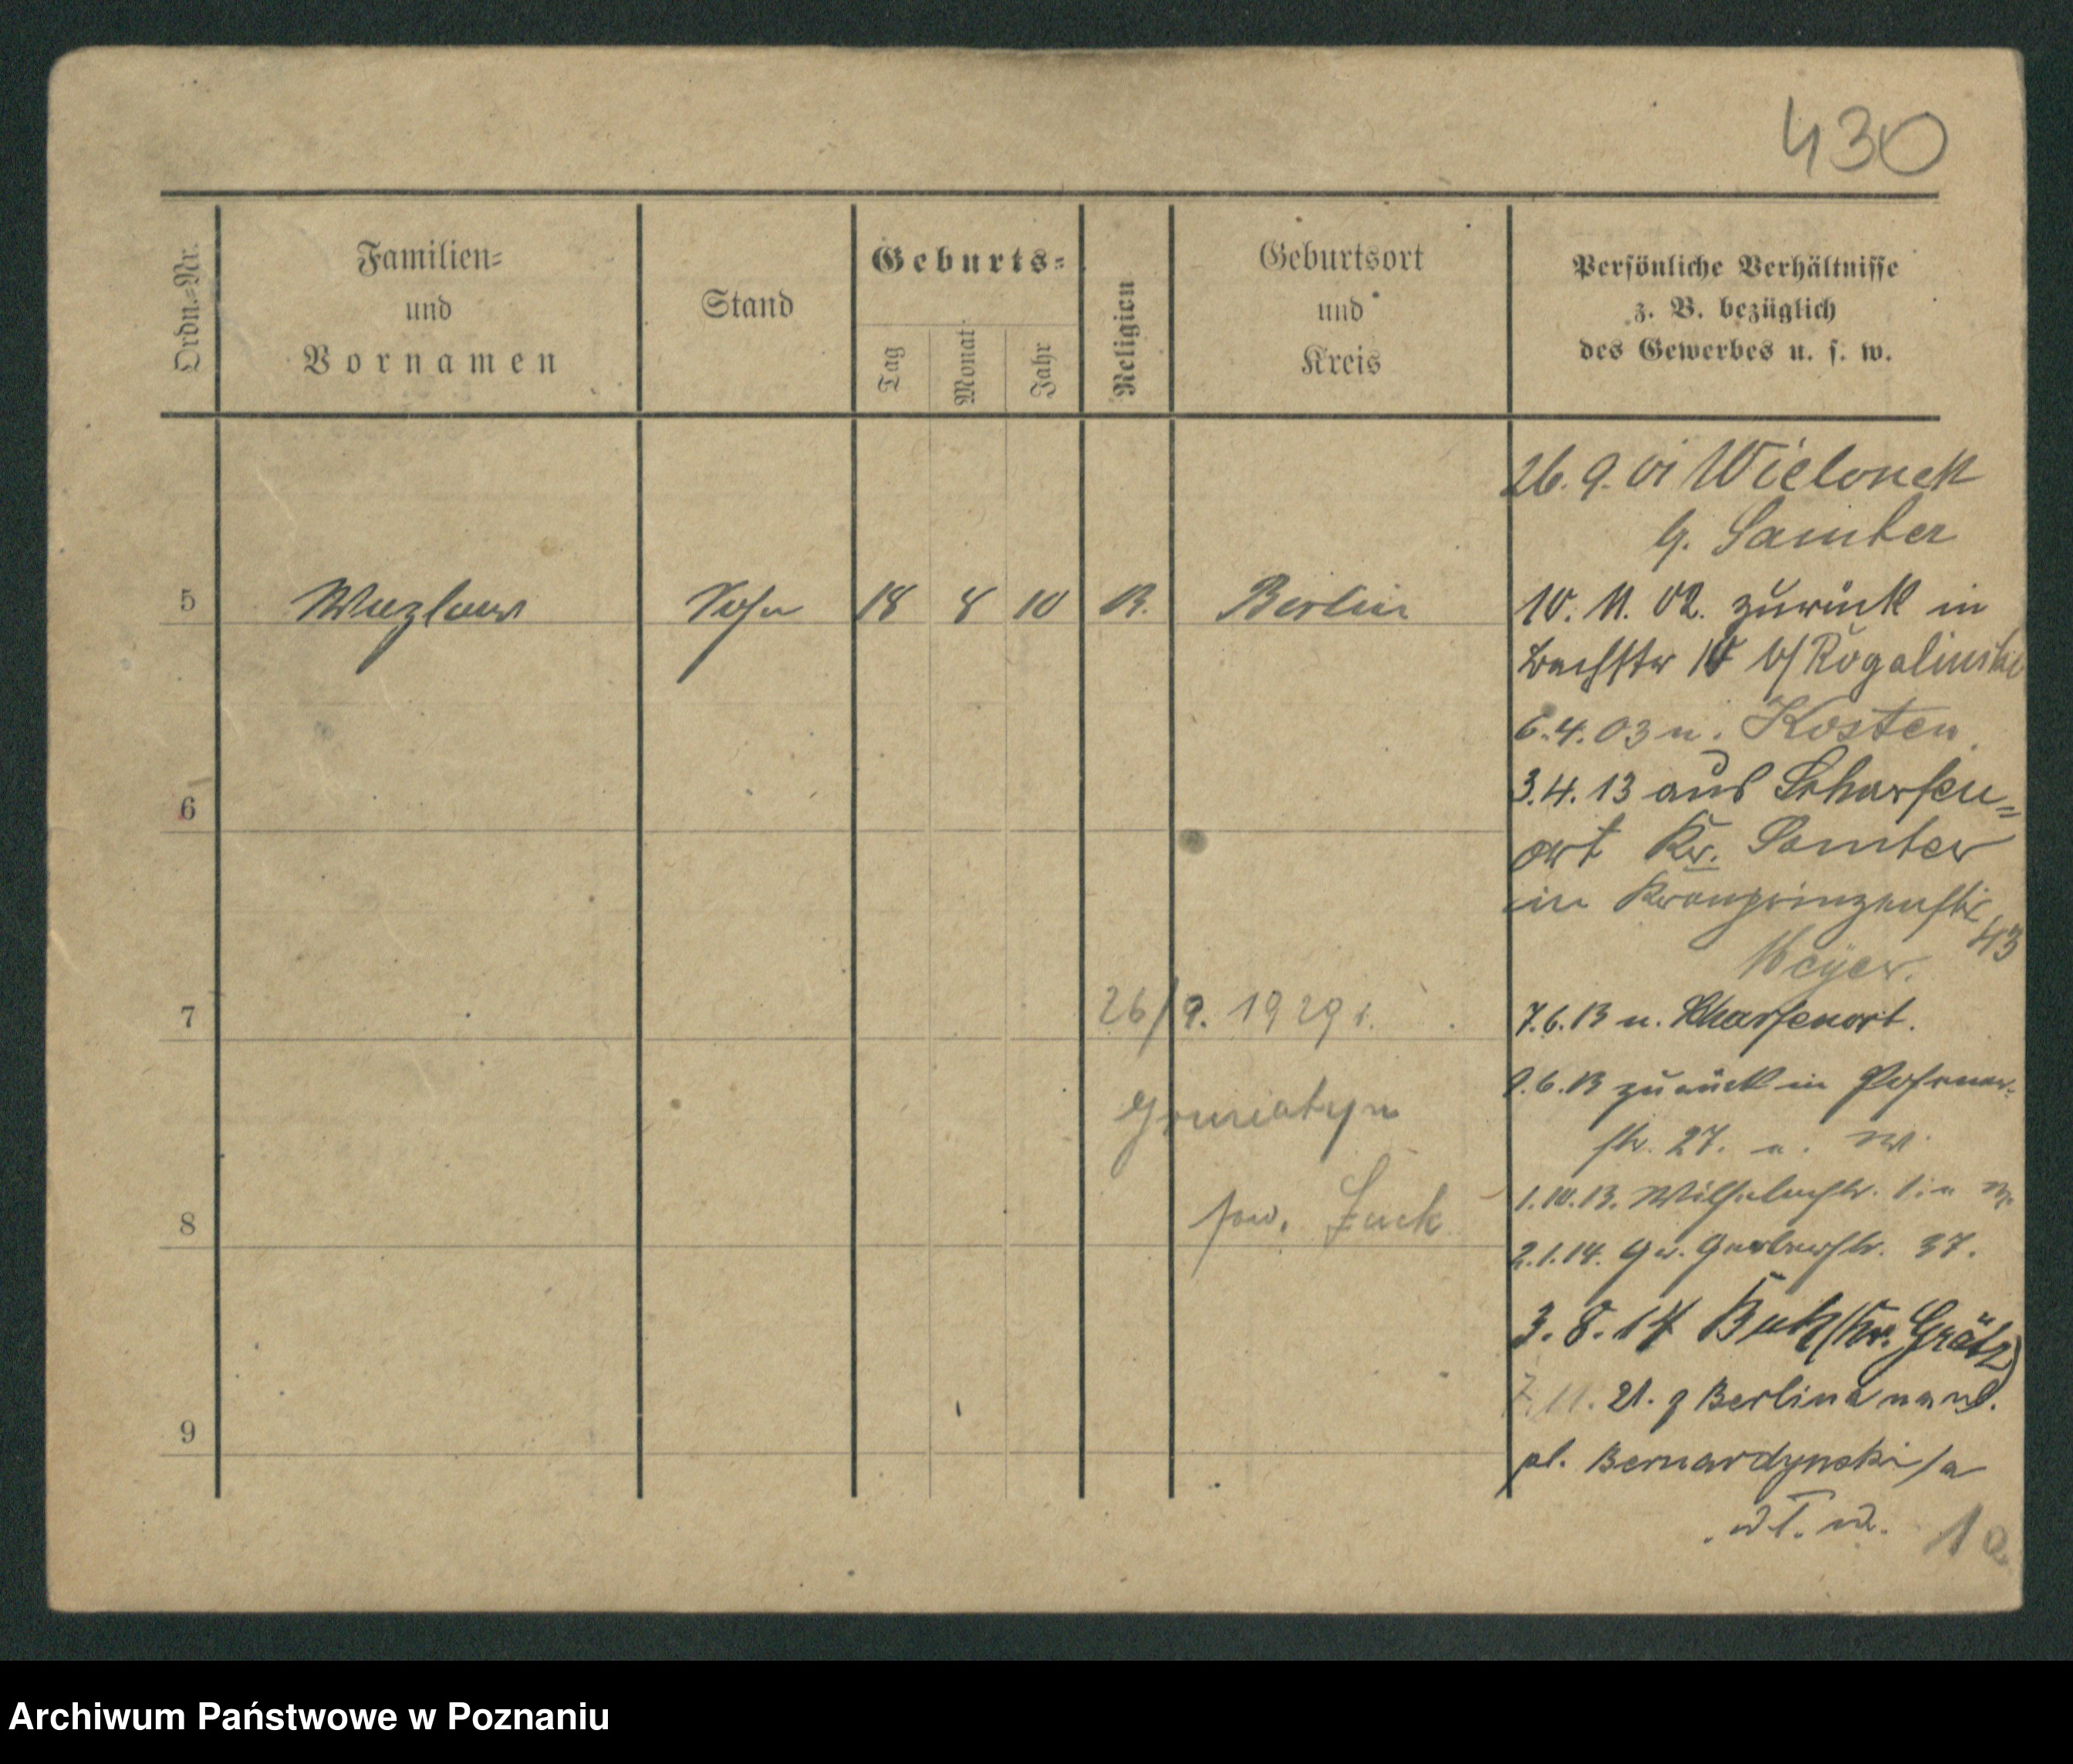 430
Ordn.-Nr.
Familien-
und
Vornamen
Stand
Geburts-
Tag
Monat
Jahr
Religion
Geburtsort
und
Kreis
Persönliche Verhältnisse
z. B. bezüglich
des Gewerbes u. s. w.
5 Sohn 18 8 10 Berlin
6
7
8
9
26/9. 1929 r.
pow.
26.9.01 Wielonek
Samter
10. 11. 02. zurück in
Bachstr 10 b/ Rogalinski
6.4.03 n. Kosten
3.4.13 aus Scharfen-
ort Kr. Samter
in Kronprinzenstr.
43
Meyer.
7.6.13 n. Scharfenort.
9.6.13 zurück in Posener-
str. 27.
1.10.13. Wilhelmstr.
2.1.14. Gr. Gerberstr. 37.
3.8.17 Buk (Kr. Grätz)
11. 21. z Berlina na ul.
pl. Bernardynski 1a
Archiwum Państwowe w Poznaniu